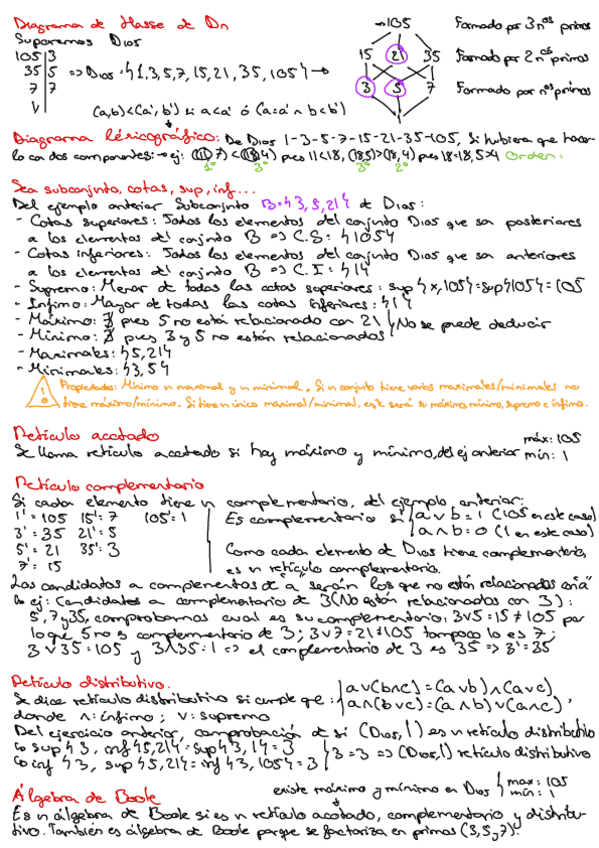 Diagrama de Hasse de Dn
Suponemos D105
105 | 3
35 | 5 => D105 = {1,3,5,7,15,21,35,105} →
7 | 7
1
(a,b)<(a',b') si a<a' ó (a=a' ∧ b<b')
→105
15 21 35
3 5 7
1
Formado por 3 nos primos
Formado por 2 nos primos
Formado por nos primos
Diagrama léxicográfico: De D105 1-3-5-7-15-21-35-105, Si hubiera que hacer-
lo con dos componentes: → ej: (11,7)<(18,4) pues 11<18, (18,5)>(18,4) pues 18=18, 5>4 Orden:
1º 3º 3º 2º
Sea subconjunto, cotas, sup, inf...
Del ejemplo anterior Subconjunto B={3,5,21} de D105:
- Cotas superiores: Todos los elementos del conjunto D105 que son posteriores
a los elementos del conjunto B => C.S: {105}
- Cotas inferiores: Todos los elementos del conjunto D105 que son anteriores
a los elementos del conjunto B => C.I: {1}
- Supremo: Menor de todas las cotas superiores: sup{x,105}=sup{105}=105
- Ínfimo: Mayor de todas las cotas inferiores: {1}
- Máximo: ∄ pues 5 no está relacionado con 21
- Mínimo: ∄ pues 3 y 5 no están relacionados
No se puede deducir
- Maximales: {5,21}
- Minimales: {3,5}
Propiedades: Mínimo un maximal y un minimal. Si un conjunto tiene varios maximales/minimales no
tiene máximo/mínimo. Si tiene un único maximal/minimal, este será su máximo, mínimo, supremo e ínfimo.
Retículo acotado
Se llama retículo acotado si hay máximo y mínimo, del ej anterior máx: 105
mín: 1
Retículo complementario
Si cada elemento tiene un complementario, del ejemplo anterior:
1'=105 15'=7 105'=1
3'=35 21'=5
5'=21 35'=3
7'=15
Es complementario si a∨b=1 (105 en este caso)
a∧b=0 (1 en este caso)
Como cada elemento de D105 tiene complementario,
es un retículo complementario.
Los candidatos a complementos de "a" serán los que no están relacionados con "a"
ej: Candidatos a complementario de 3 (No están relacionados con 3):
5, 7 y 35, comprobamos cual es su complementario: 3∨5=15≠105 por
lo que 5 no es complementario de 3; 3∨7=21≠105 tampoco lo es 7;
3∨35=105 y 3∧35=1 => el complementario de 3 es 35 => 3'=35
Retículo distributivo.
Se dice retículo distributivo si cumple que: a∨(b∧c)=(a∨b)∧(a∨c)
a∧(b∨c)=(a∧b)∨(a∧c),
donde ∧: ínfimo; ∨: supremo
Del ejercicio anterior, comprobación de si (D105,|) es un retículo distributivo
sup{3, inf{5,21}}=sup{3,1}=3
inf{3, sup{5,21}}=inf{3,105}=3
3=3 => (D105,|) retículo distributivo
Álgebra de Boole
existe máximo y mínimo en D105 max: 105
mín: 1
Es un álgebra de Boole si es un retículo acotado, complementario y distribu-
tivo. También es álgebra de Boole porque se factoriza en primos (3,5 y 7).